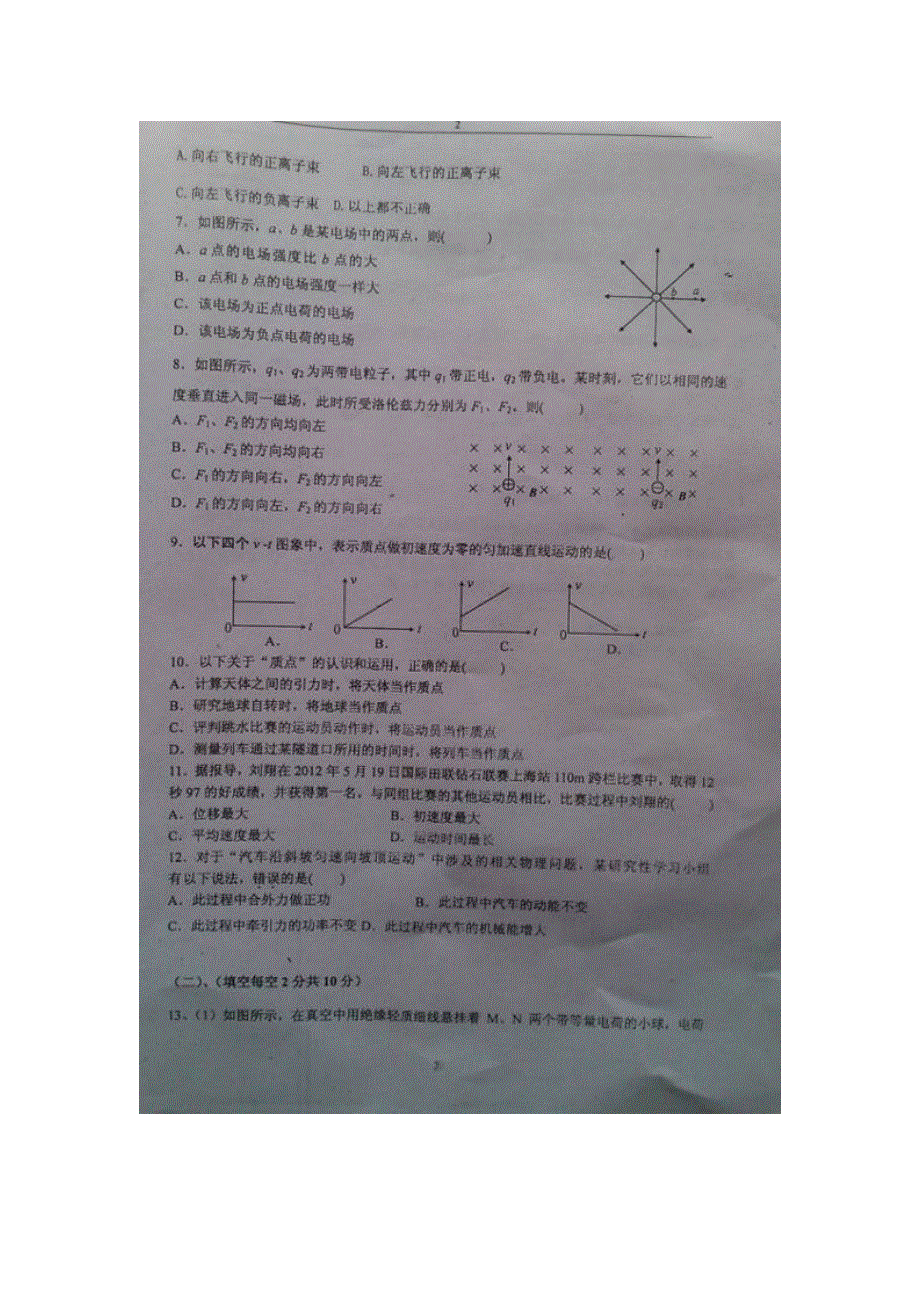 2
A.向右飞行的正离子束 B.向左飞行的正离子束
C.向左飞行的负离子束 D.以上都不正确
7．如图所示，a、b是某电场中的两点，则( )
A．a点的电场强度比b点的大
B．a点和b点的电场强度一样大
C．该电场为正点电荷的电场
D．该电场为负点电荷的电场
b a
8．如图所示，q1、q2为两带电粒子，其中q1带正电，q2带负电。某时刻，它们以相同的速
度垂直进入同一磁场，此时所受洛伦兹力分别为F1、F2。则( )
A．F1、F2的方向均向左
B．F1、F2的方向均向右
C．F1的方向向右，F2的方向向左
D．F1的方向向左，F2的方向向右
× × v × × × × × × v × ×
× × × × × × × × × ×
× × ⊕ × B × × × × × ⊖ × B ×
q1 q2
9．以下四个v-t图象中，表示质点做初速度为零的匀加速直线运动的是( )
v v v v
0 t 0 t 0 t 0 t
A． B． C． D．
10．以下关于“质点”的认识和运用，正确的是( )
A．计算天体之间的引力时，将天体当作质点
B．研究地球自转时，将地球当作质点
C．评判跳水比赛的运动员动作时，将运动员当作质点
D．测量列车通过某隧道口所用的时间时，将列车当作质点
11．据报导，刘翔在2012年5月19日国际田联钻石联赛上海站110m跨栏比赛中，取得12
秒97的好成绩，并获得第一名，与同组比赛的其他运动员相比，比赛过程中刘翔的( )
A．位移最大 B．初速度最大
C．平均速度最大 D．运动时间最长
12．对于“汽车沿斜坡匀速向坡顶运动”中涉及的相关物理问题，某研究性学习小组
有以下说法，错误的是( )
A．此过程中合外力做正功 B．此过程中汽车的动能不变
C．此过程中牵引力的功率不变 D．此过程中汽车的机械能增大
（二）、（填空每空2分共10分）
13、（1）如图所示，在真空中用绝缘轻质细线悬挂着 M、N 两个带等量电荷的小球，电荷